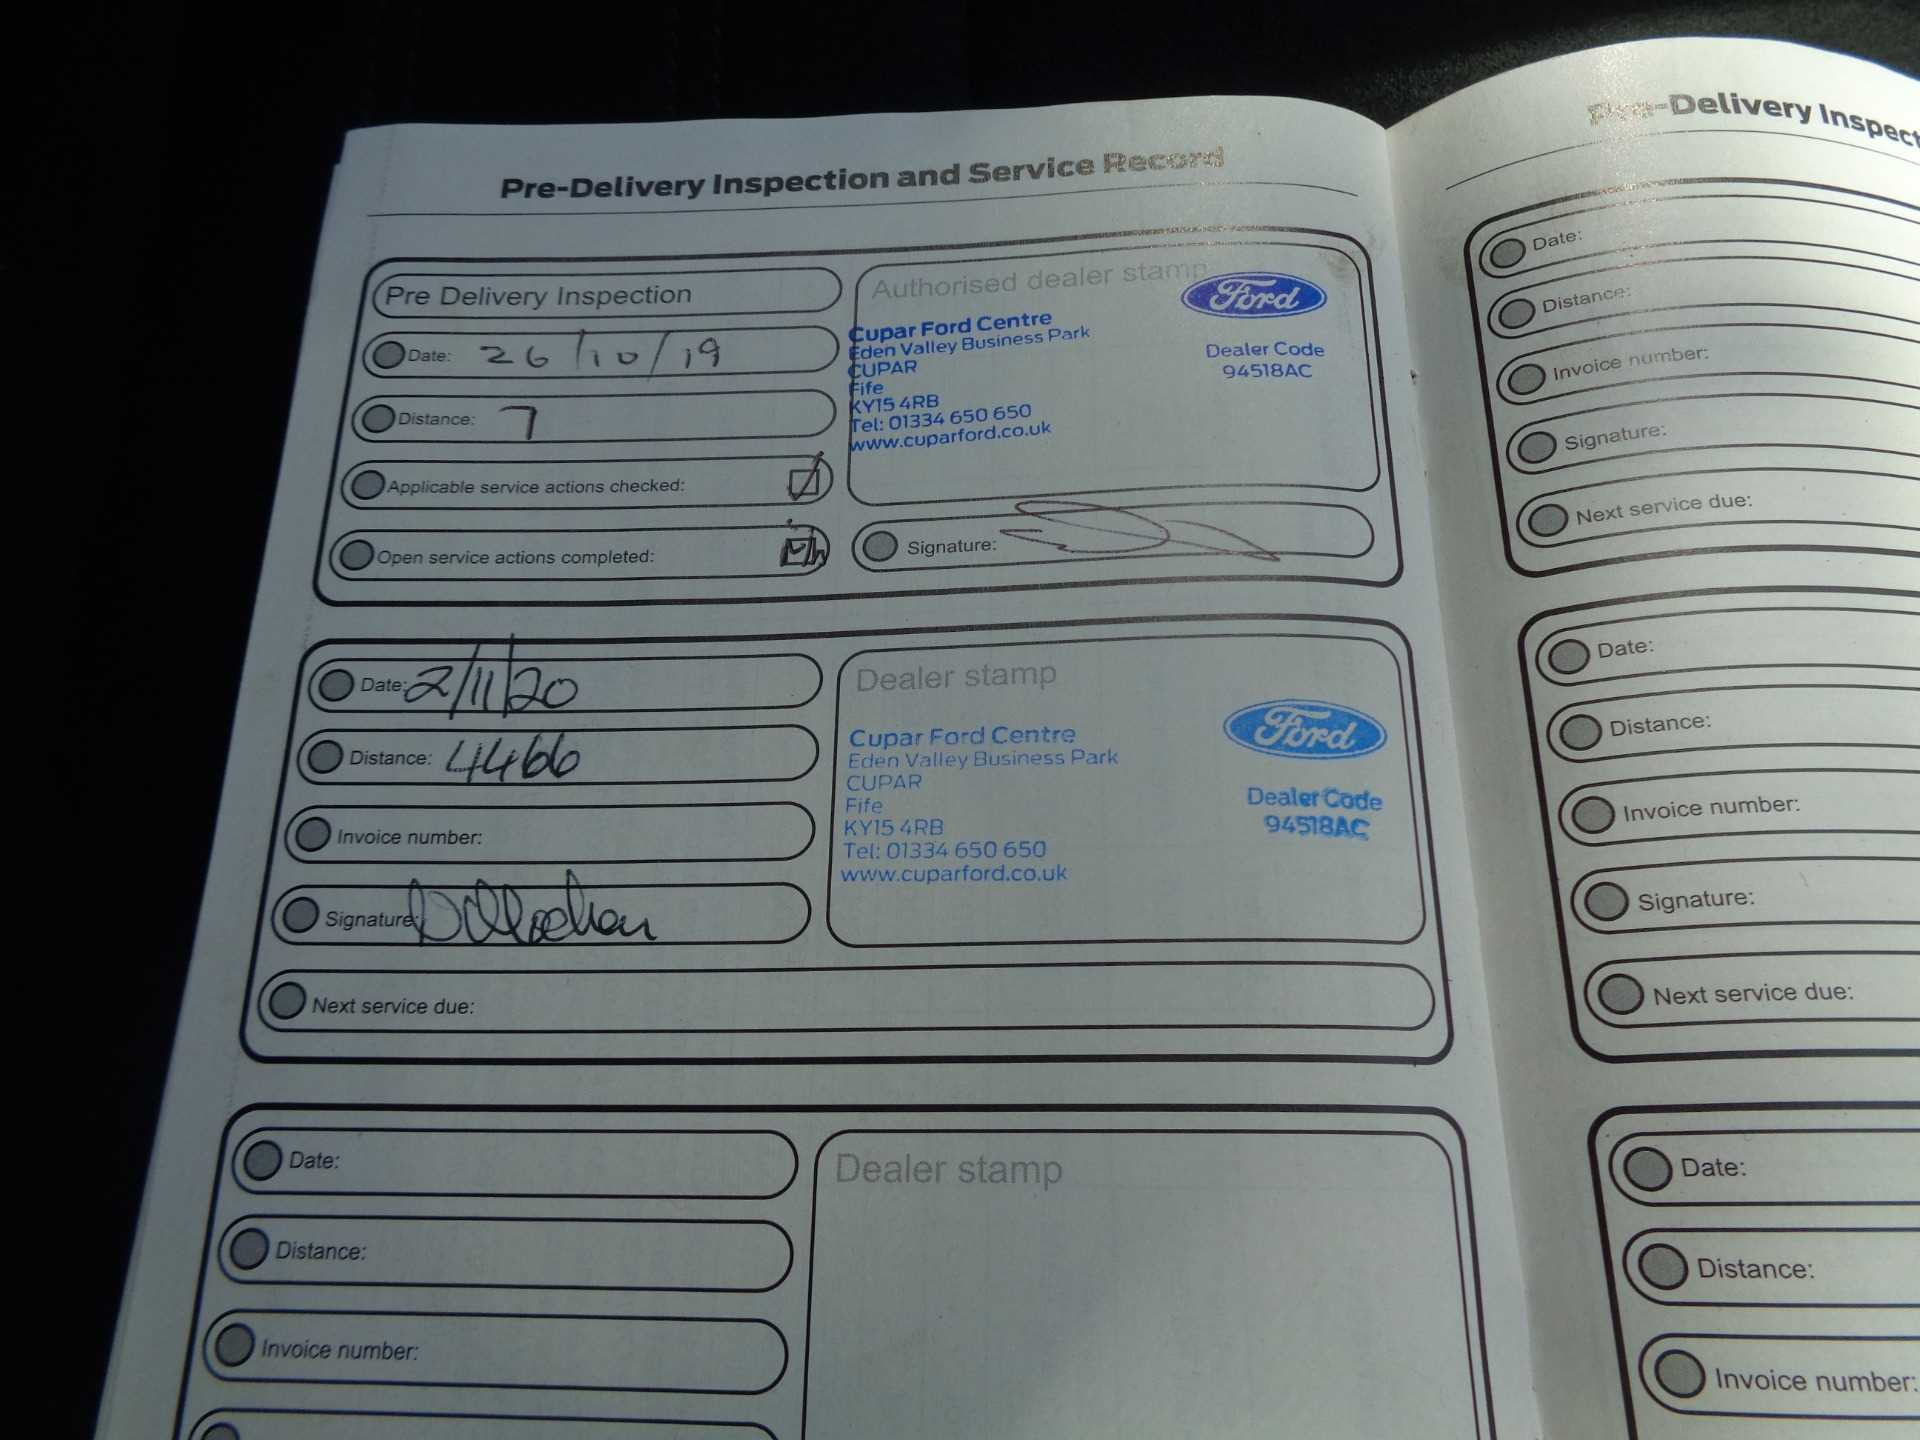 Pre-Delivery Inspection and Service Record
Pre Delivery Inspection
Date: 26/10/19
Distance: 7
Applicable service actions checked:
Open service actions completed:
Authorised dealer stamp
Ford
Cupar Ford Centre
Eden Valley Business Park
CUPAR
Fife
KY15 4RB
Tel: 01334 650 650
www.cuparford.co.uk
Dealer Code
94518AC
Signature:
Date: 2/11/20
Distance: 4466
Invoice number:
Signature:
Next service due:
Dealer stamp
Ford
Cupar Ford Centre
Eden Valley Business Park
CUPAR
Fife
KY15 4RB
Tel: 01334 650 650
www.cuparford.co.uk
Dealer Code
94518AC
Date:
Distance:
Invoice number:
Dealer stamp
Pre-Delivery Inspect
Date:
Distance:
Invoice number:
Signature:
Next service due:
Date:
Distance:
Invoice number:
Signature:
Next service due:
Date:
Distance:
Invoice number: